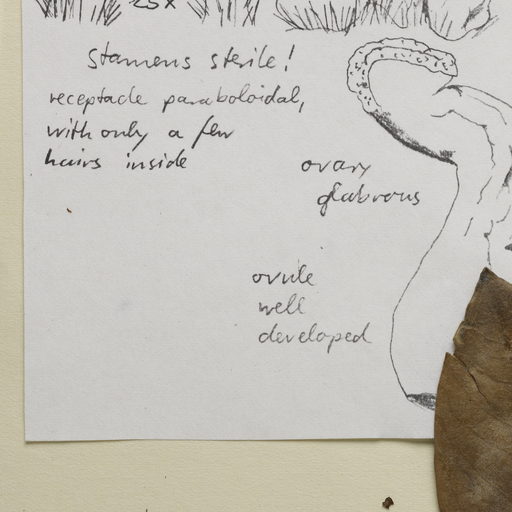 25x
Stamens sterile!
receptacle paraboloidal,
with only a few
hairs inside
ovary
glabrous
ovule
well
developed